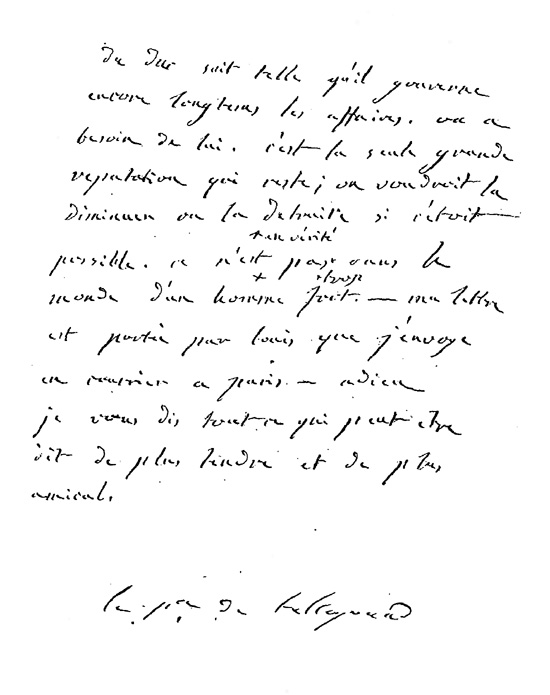 du duc soit telle qu'il gouverne
encore longtems les affaires. on a
besoin de lui. c'est la seule grande
reputation qui reste; on voudroit la
diminuer ou la detruire si c'étoit
+ en vérité
possible. ce n'est pas dans le
+ trop
monde d'un homme fort. — ma lettre
est portée par louis que j'envoye
en courrier a paris — adieu
je vous dis tout ce qui peut etre
dit de plus tendre et de plus
amical.
le pce de talleyrand